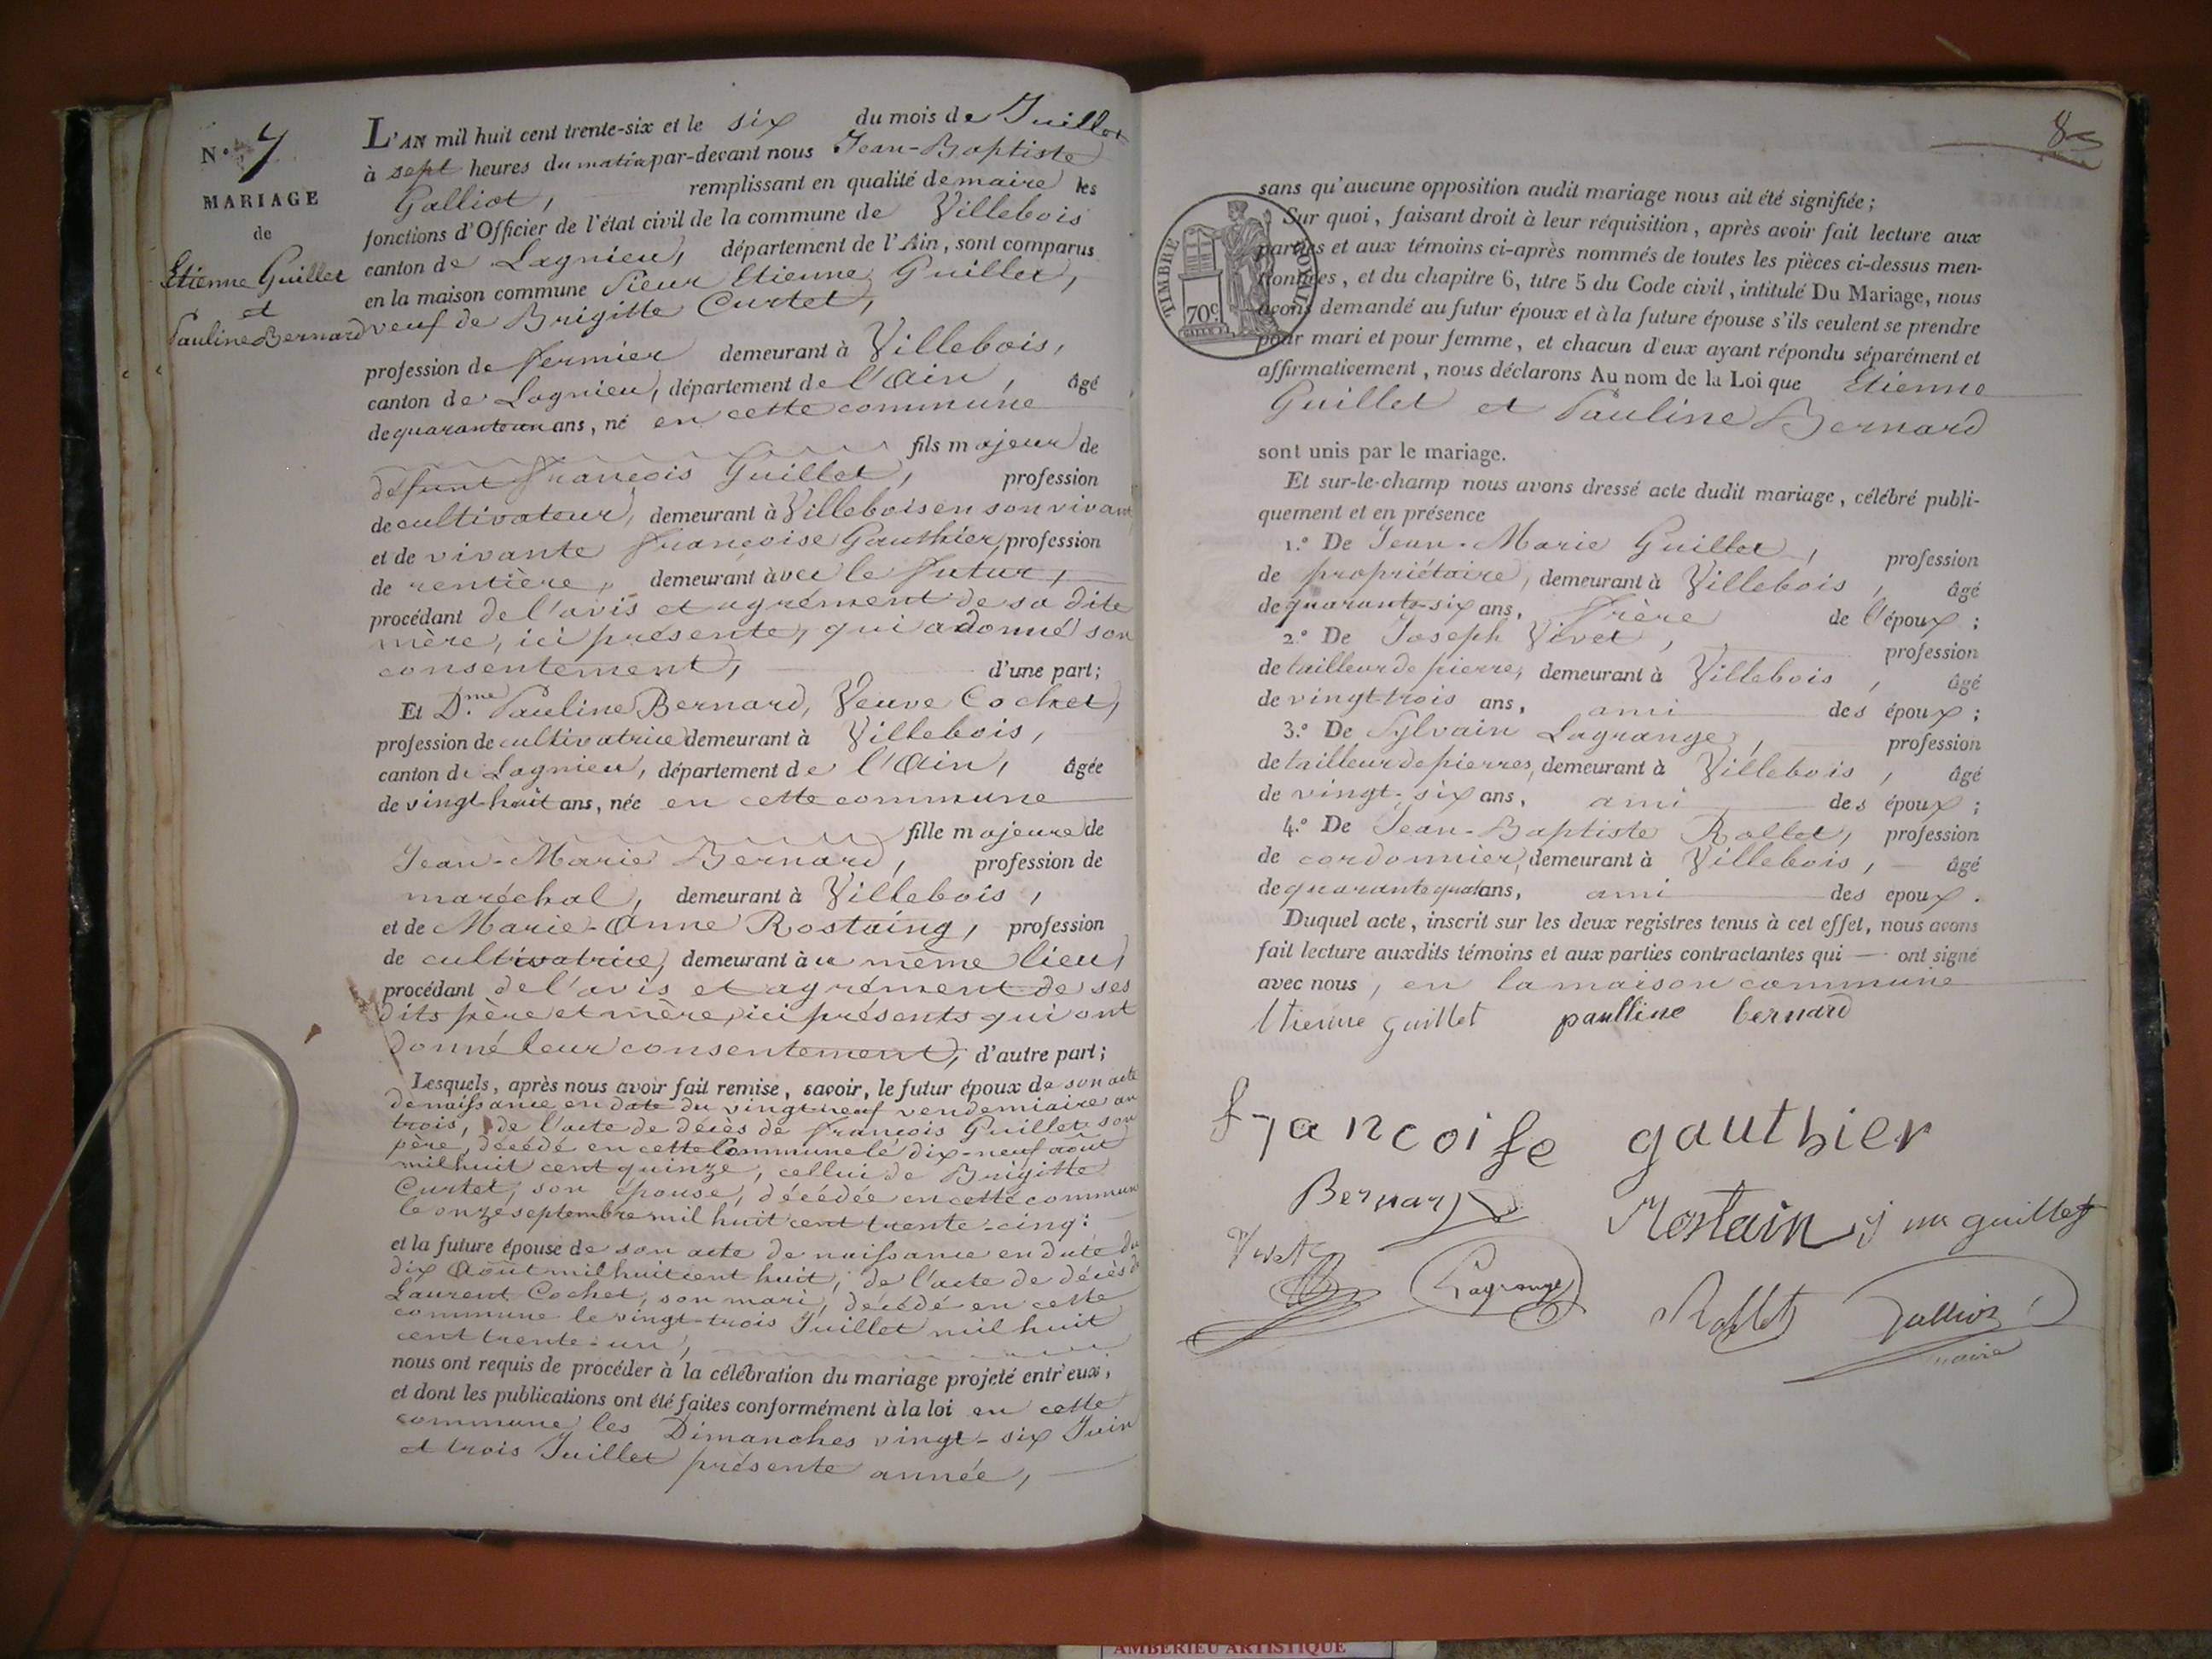 N.° 7
MARIAGE
de
Etienne Guillet
et
Pauline Bernard
L'AN mil huit cent trente-six et le six du mois de Juillet
à sept heures du matin par-devant nous Jean-Baptiste
Galliot, remplissant en qualité de maire les
fonctions d'Officier de l'état civil de la commune de Villebois
canton de Lagnieu, département de l'Ain, sont comparus
en la maison commune Sieur Etienne Guillet,
veuf de Brigitte Curtet,
profession de fermier demeurant à Villebois,
canton de Lagnieu, département de l'Ain, âgé
de quarante un ans, né en cette commune
fils majeur de
défunt François Guillet, profession
de cultivateur, demeurant à Villebois en son vivant
et de vivante Françoise Gauthier, profession
de rentière, demeurant avec le futur,
procédant de l'avis et agrément de sa dite
mère, ici présente, qui a donné son
consentement, d'une part;
Et D.me Pauline Bernard, Veuve Cochet,
profession de cultivatrice demeurant à Villebois,
canton de Lagnieu, département de l'Ain, âgée
de vingt-huit ans, née en cette commune
fille majeure de
Jean-Marie Bernard, profession de
maréchal, demeurant à Villebois,
et de Marie-Anne Rostaing, profession
de cultivatrice, demeurant au même lieu,
procédant de l'avis et agrément de ses
dits père et mère, ici présents qui ont
donné leur consentement, d'autre part;
Lesquels, après nous avoir fait remise, savoir, le futur époux de son acte
de naissance en date du vingt neuf vendemiaire an
trois, de l'acte de décès de François Guillet son
père, décédé en cette Commune le dix-neuf août
mil huit cent quinze, cellui de Brigitte
Curtet, son épouse, décédée en cette commune
le onze septembre mil huit cent trente-cinq:
et la future épouse de son acte de naissance en date du
dix Août mil huit cent huit, de l'acte de décès de
Laurent Cochet, son mari, décédé en cette
commune le vingt-trois Juillet mil huit
cent trente-un,
nous ont requis de procéder à la célébration du mariage projeté entr'eux,
et dont les publications ont été faites conformément à la loi en cette
commune les Dimanches vingt-six Juin
et trois Juillet présente année,
8
TIMBRE ROYAL
70c
sans qu'aucune opposition audit mariage nous ait été signifiée;
Sur quoi, faisant droit à leur réquisition, après avoir fait lecture aux
parties et aux témoins ci-après nommés de toutes les pièces ci-dessus men-
tionnées, et du chapitre 6, titre 5 du Code civil, intitulé Du Mariage, nous
avons demandé au futur époux et à la future épouse s'ils veulent se prendre
pour mari et pour femme, et chacun d'eux ayant répondu séparément et
affirmativement, nous déclarons Au nom de la Loi que Etienne
Guillet et Pauline Bernard
sont unis par le mariage.
Et sur-le-champ nous avons dressé acte dudit mariage, célébré publi-
quement et en présence
1.° De Jean-Marie Guillet, profession
de propriétaire, demeurant à Villebois, âgé
de quarante-six ans, frère de l'époux;
2.° De Joseph Vivet, profession
de tailleur de pierre, demeurant à Villebois, âgé
de vingt-trois ans, ami des époux;
3.° De Sylvain Lagrange, profession
de tailleur de pierres, demeurant à Villebois, âgé
de vingt-six ans, ami des époux;
4.° De Jean-Baptiste Rollet, profession
de cordonnier, demeurant à Villebois, âgé
de quarante quatre ans, ami des epoux.
Duquel acte, inscrit sur les deux registres tenus à cet effet, nous avons
fait lecture auxdits témoins et aux parties contractantes qui — ont signé
avec nous, en la maison commune
Etienne guillet paulline bernard
françoise gauthier
Bernard Rostain j m guillet
Vivet Lagrange Rollet Galliot
maire
AMBERIEU ARTISTIQUE